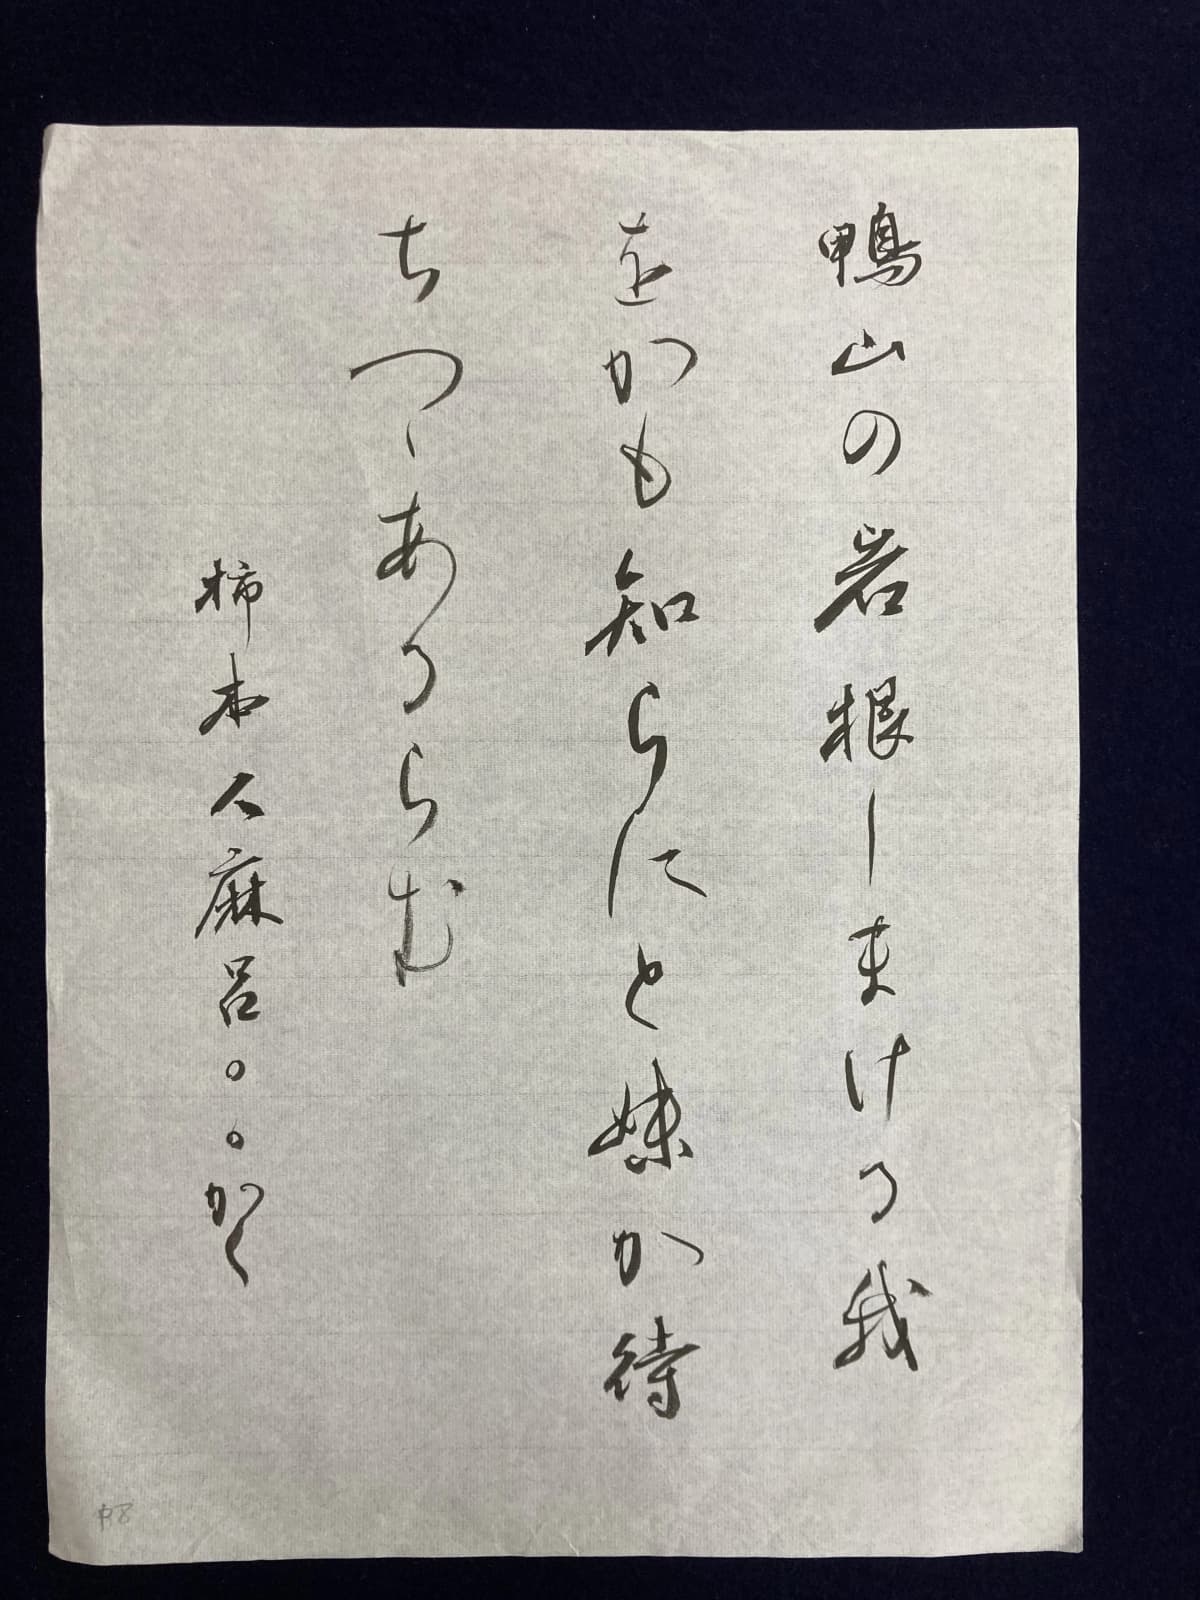 鴨山の岩根しまける我
をかも知らにと妹か待
ちつゝあるらむ
柿本人麻呂。。かく